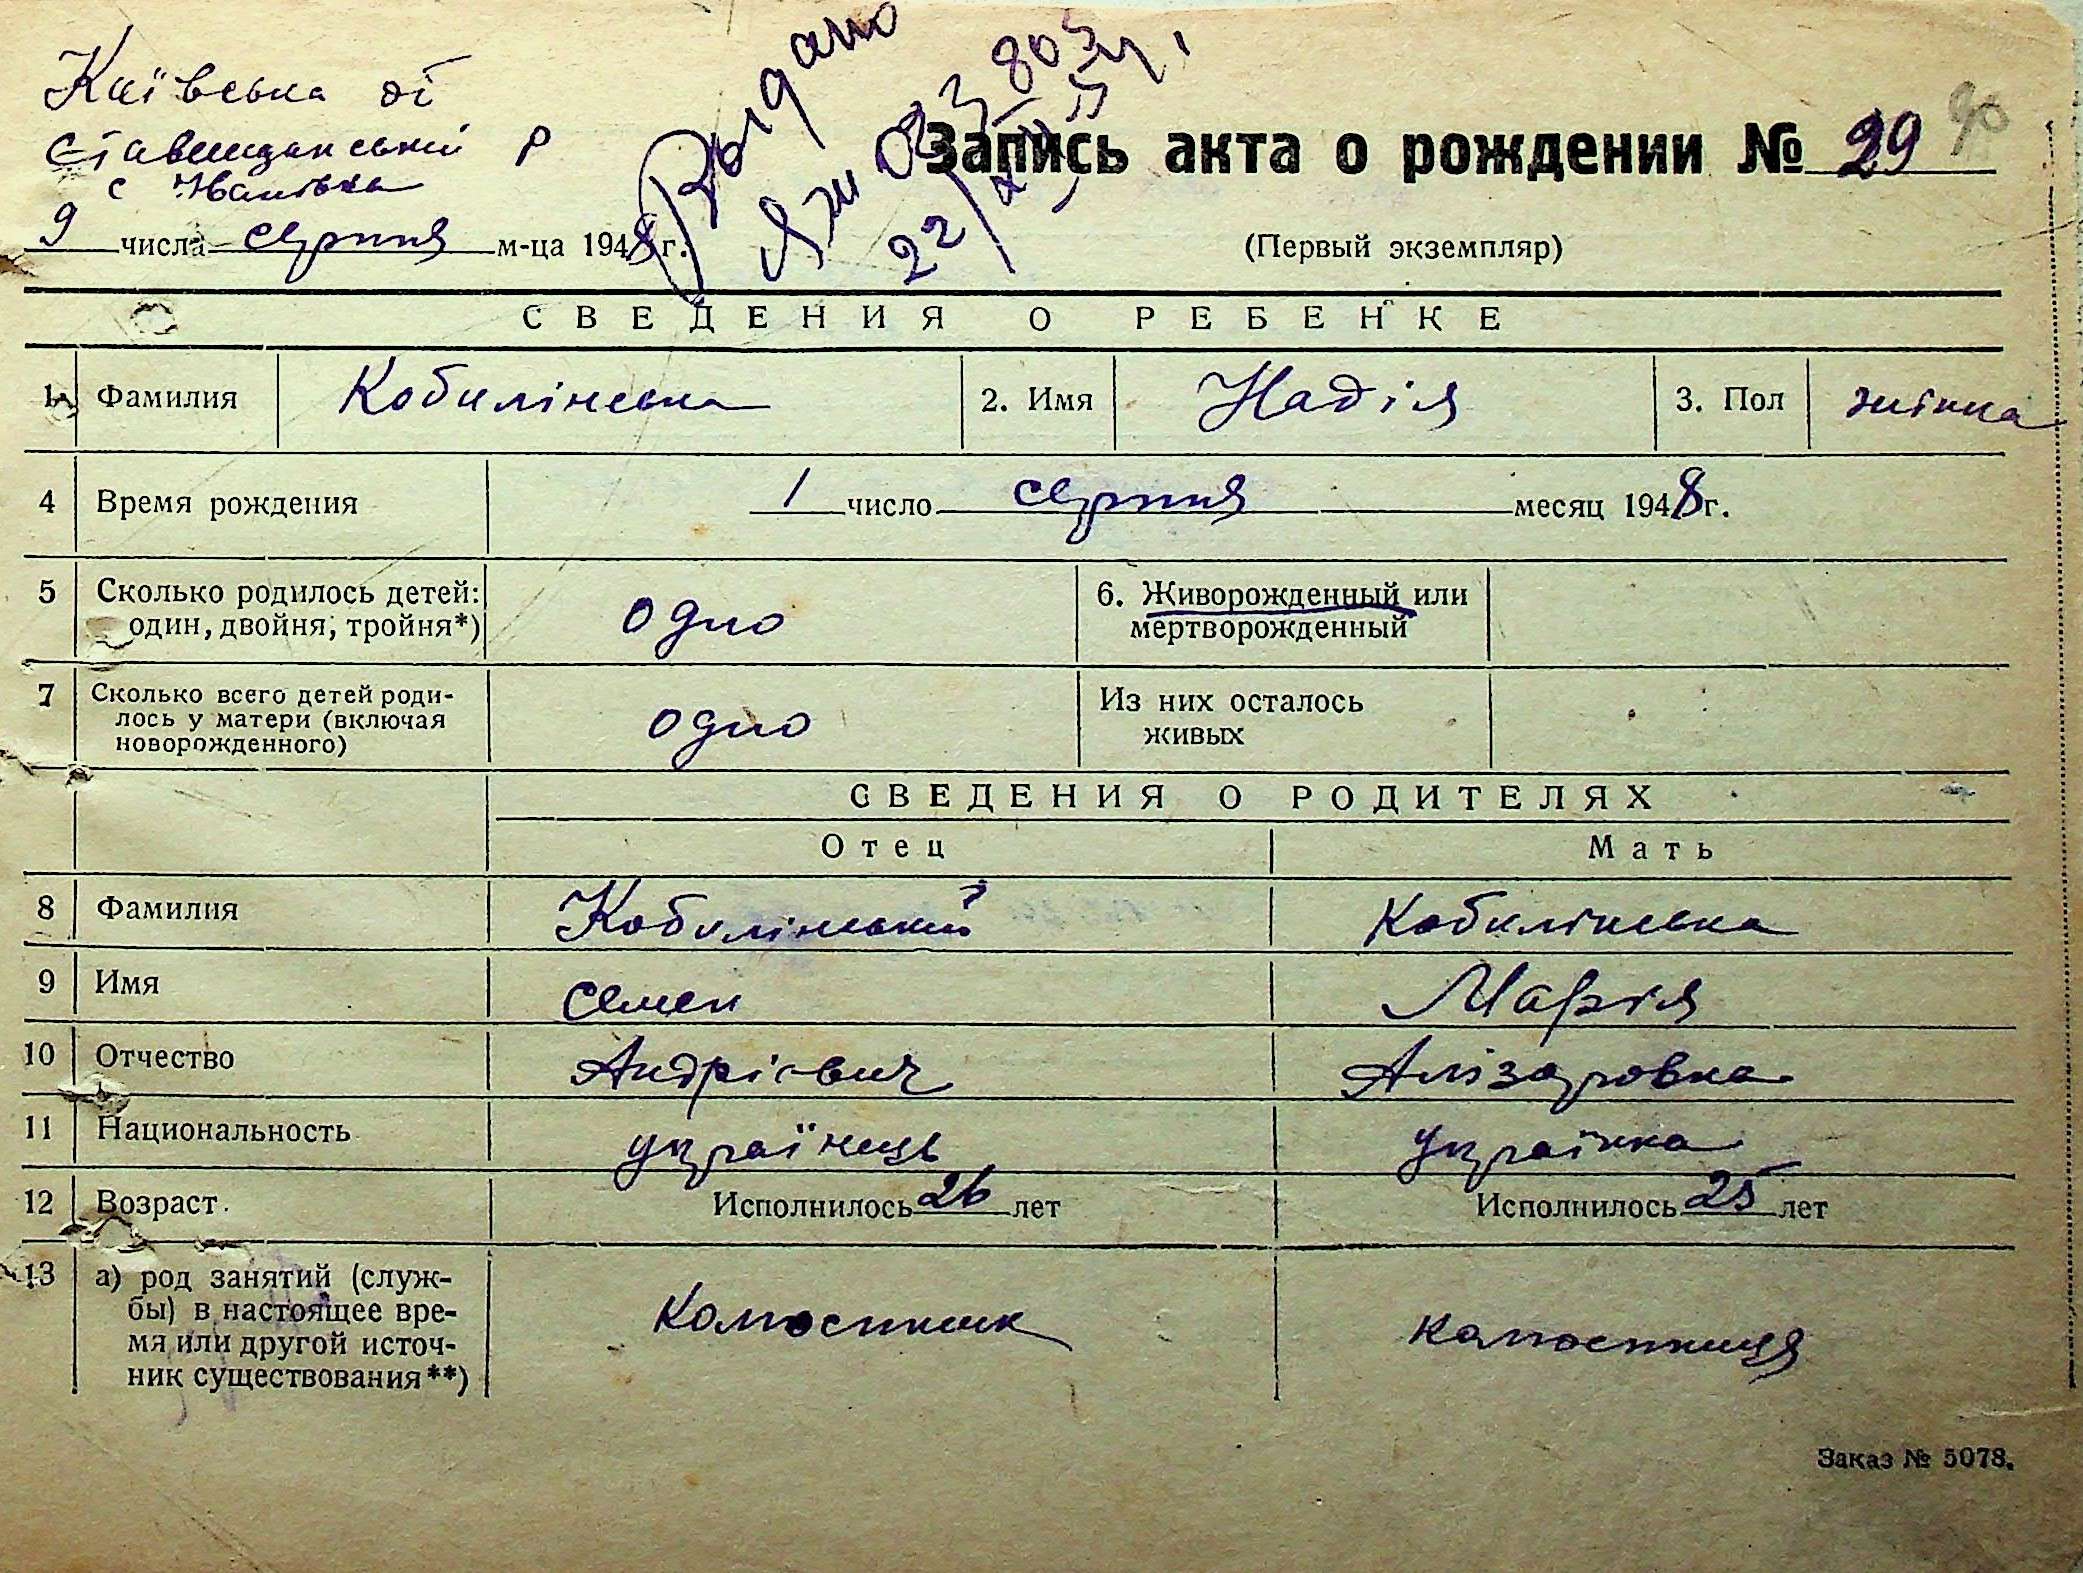 Київська об
Ставищанський р
с Іванівка
9 числа серпня м-ца 1948 г.
Выдано
803
22/
Запись акта о рождении № 29
90
(Первый экземпляр)
СВЕДЕНИЯ О РЕБЕНКЕ
1. Фамилия Кобилінська 2. Имя Надія 3. Пол жінка
4 Время рождения 1 число серпня месяц 1948 г.
5 Сколько родилось детей: один, двойня, тройня*) одно 6. Живорожденный или
мертворожденный
7 Сколько всего детей роди-
лось у матери (включая
новорожденного) одно Из них осталось
живых
СВЕДЕНИЯ О РОДИТЕЛЯХ
Отец Мать
8 Фамилия Кобилінський Кобилінська
9 Имя Семен Марія
10 Отчество Андрієвич Алізаровна
11 Национальность українець українка
12 Возраст Исполнилось 26 лет Исполнилось 25 лет
13 а) род занятий (служ-
бы) в настоящее вре-
мя или другой источ-
ник существования**) Колгоспник колгоспниця
Заказ № 5078.